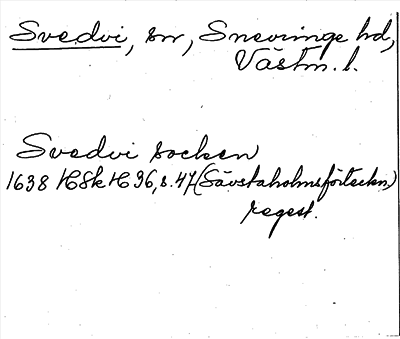 Svedvi, sn, Snevringe hd,
Västm. l.
Svedvi socken
1638 HSk H 36, s. 47 (Sävstaholmsförteckn.)
regest.